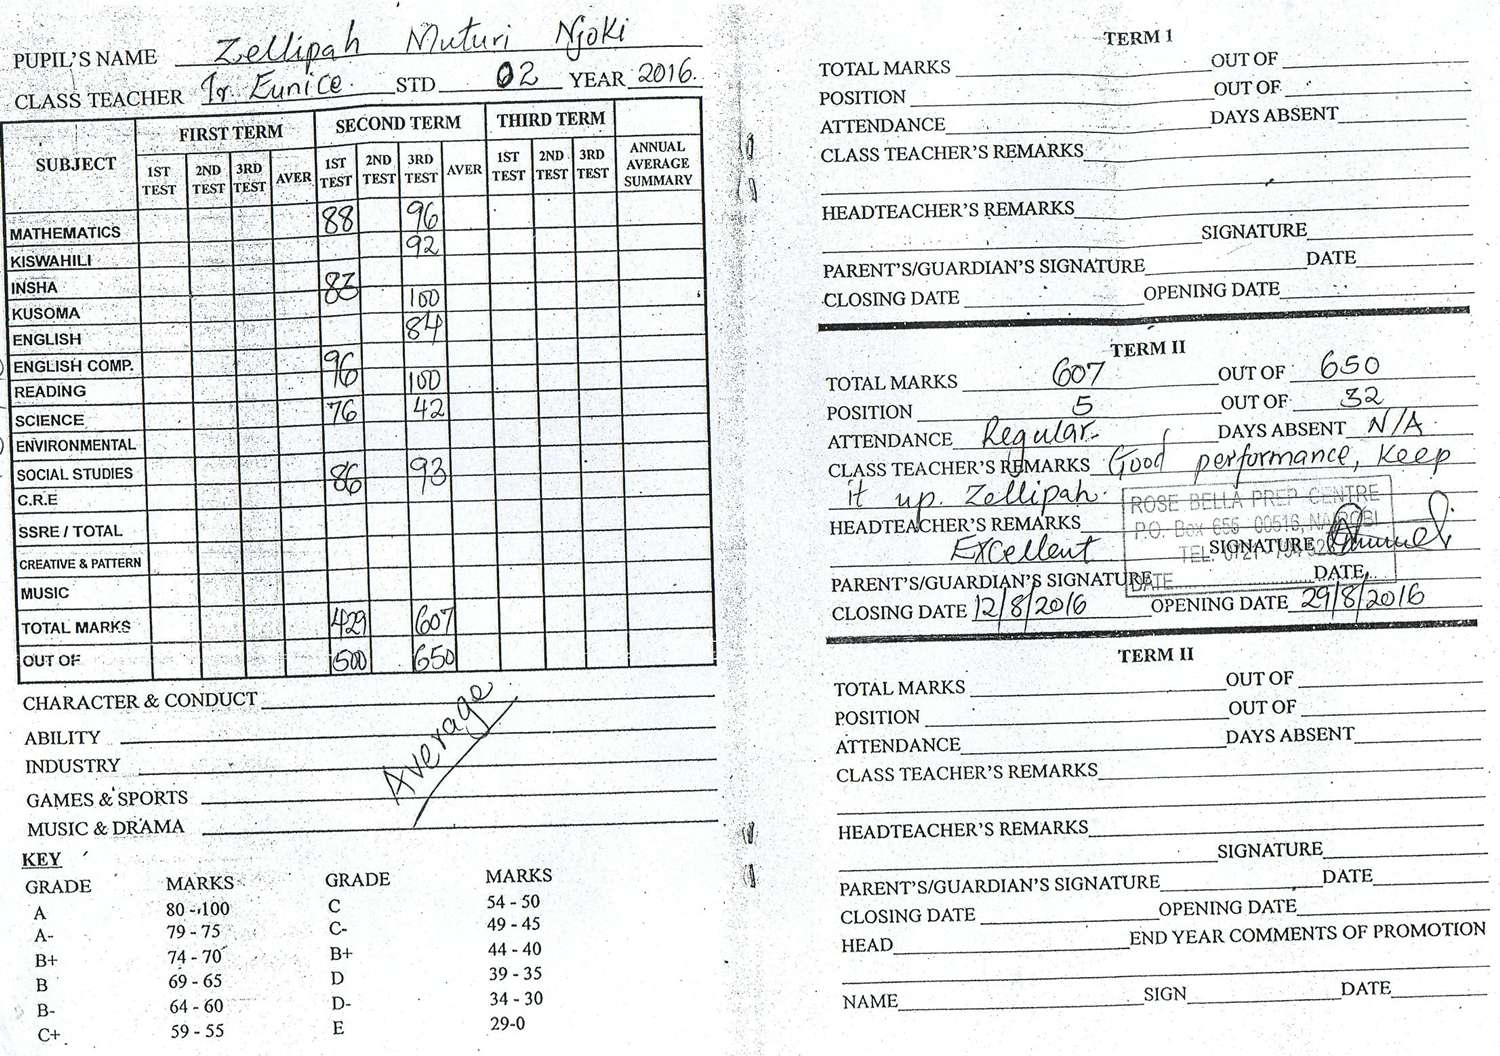 PUPIL'S NAME Zellipah Muturi Njoki
CLASS TEACHER Tr. Eunice. STD 02 YEAR 2016.
SUBJECT FIRST TERM SECOND TERM THIRD TERM
1ST TEST 2ND TEST 3RD TEST AVER 1ST TEST 2ND TEST 3RD TEST AVER 1ST TEST 2ND TEST 3RD TEST ANNUAL AVERAGE SUMMARY
MATHEMATICS 88 96
KISWAHILI 92
INSHA 83
KUSOMA 100
ENGLISH 84
ENGLISH COMP. 96
READING 100
SCIENCE 76 42
ENVIRONMENTAL
SOCIAL STUDIES 86 93
C.R.E
SSRE / TOTAL
CREATIVE & PATTERN
MUSIC
TOTAL MARKS 429 607
OUT OF 500 650
CHARACTER & CONDUCT
ABILITY
INDUSTRY
GAMES & SPORTS
MUSIC & DRAMA
Average
KEY
GRADE MARKS GRADE MARKS
A 80 - 100 C 54 - 50
A- 79 - 75 C- 49 - 45
B+ 74 - 70 B+ 44 - 40
B 69 - 65 D 39 - 35
B- 64 - 60 D- 34 - 30
C+ 59 - 55 E 29-0
TERM 1
TOTAL MARKS OUT OF
POSITION OUT OF
ATTENDANCE DAYS ABSENT
CLASS TEACHER'S REMARKS
HEADTEACHER'S REMARKS
SIGNATURE
PARENT'S/GUARDIAN'S SIGNATURE DATE
CLOSING DATE OPENING DATE
TERM II
TOTAL MARKS 607 OUT OF 650
POSITION 5 OUT OF 32
ATTENDANCE Regular. DAYS ABSENT N/A
CLASS TEACHER'S REMARKS Good performance, keep
it up. Zellipah.
HEADTEACHER'S REMARKS
Excellent SIGNATURE
ROSE BELLA PREP CENTRE
P.O. Box 656 00516, NAIROBI
TEL: 0721
DATE
PARENT'S/GUARDIAN'S SIGNATURE DATE
CLOSING DATE 12/8/2016 OPENING DATE 29/8/2016
TERM II
TOTAL MARKS OUT OF
POSITION OUT OF
ATTENDANCE DAYS ABSENT
CLASS TEACHER'S REMARKS
HEADTEACHER'S REMARKS
SIGNATURE
PARENT'S/GUARDIAN'S SIGNATURE DATE
CLOSING DATE OPENING DATE
HEAD END YEAR COMMENTS OF PROMOTION
NAME SIGN DATE